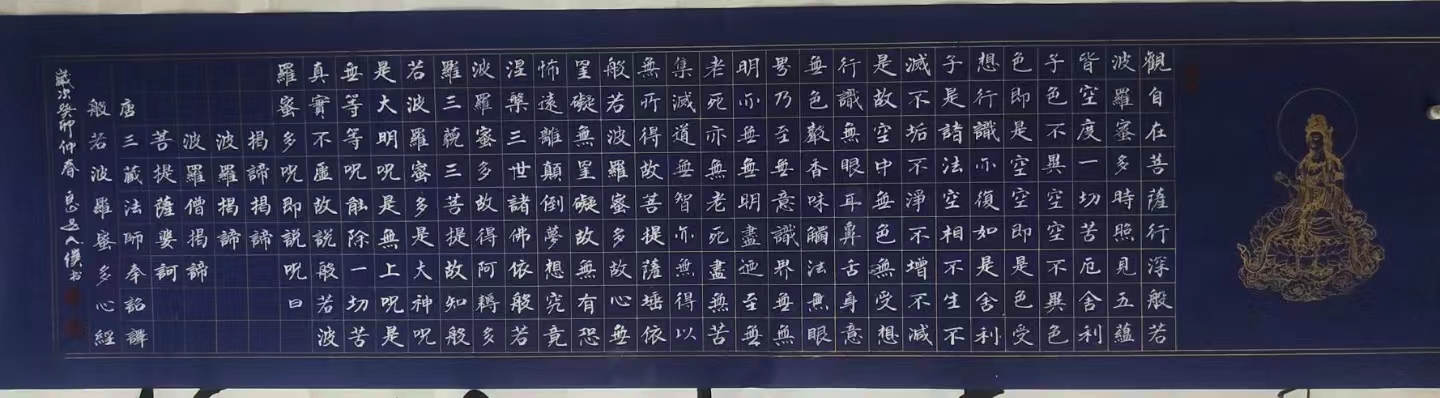 觀自在菩薩行深般若
波羅蜜多時照見五蘊
皆空度一切苦厄舍利
子色不異空空不異色
色即是空空即是色受
想行識亦復如是舍利
子是諸法空相不生不
滅不垢不淨不增不減
是故空中無色無受想
行識無眼耳鼻舌身意
無色聲香味觸法無眼
界乃至無意識界無無
明亦無無明盡迺至無
老死亦無老死盡無苦
集滅道無智亦無得以
無所得故菩提薩埵依
般若波羅蜜多故心無
罣礙無罣礙故無有恐
怖遠離顛倒夢想究竟
涅槃三世諸佛依般若
波羅蜜多故得阿耨多
羅三藐三菩提故知般
若波羅蜜多是大神呪
是大明呪是無上呪是
無等等呪能除一切苦
真實不虛故說般若波
羅蜜多呪即說呪曰
揭諦揭諦
波羅揭諦
波羅僧揭諦
菩提薩婆訶
唐三藏法師奉詔譯
般若波羅蜜多心經
歲次癸卯仲春